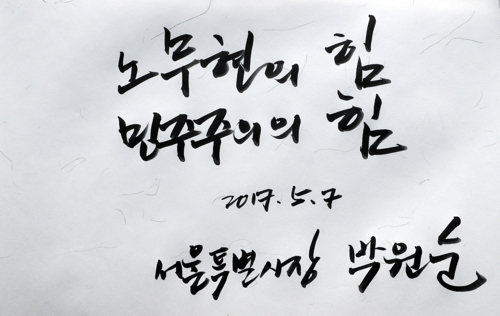 노무현의 힘
민주주의의 힘
2017. 5. 7
서울특별시장 박원순